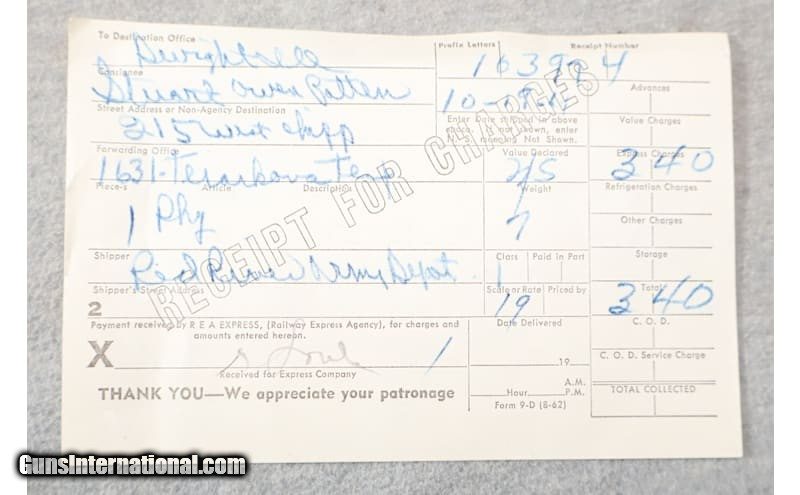 To Destination Office
Prefix Letters Receipt Number
Consignee
Stuart Owen Patten
Street Address or Non-Agency Destination
215 West
Forwarding Office
Enter Date shipped in above space. If not shown, enter
Not Shown.
Advances
Value Charges
1631 Texarkana Tex
Value Declared
Express Charges
340
Piece-s Article Description
Weight
Refrigeration Charges
1 Pkg
7
Other Charges
Shipper
Class Paid in Part
Storage
Red River Army Depot 1
Shipper's Street Address
Scale or Rate Priced by
Total
19
340
2
RECEIPT FOR CHARGES
Payment received by R E A EXPRESS, (Railway Express Agency), for charges and
amounts entered hereon.
Date Delivered
C. O. D.
X
19
C. O. D. Service Charge
Received for Express Company
THANK YOU—We appreciate your patronage
Hour A.M. P.M.
TOTAL COLLECTED
Form 9-D (8-62)
GunsInternational.com